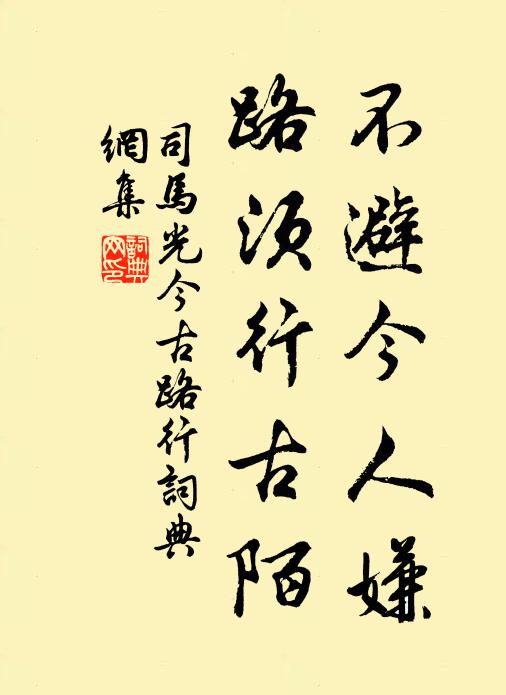 不避今人嫌
路須行古陌
司馬光今古路行詞典
網集
詞典
网印